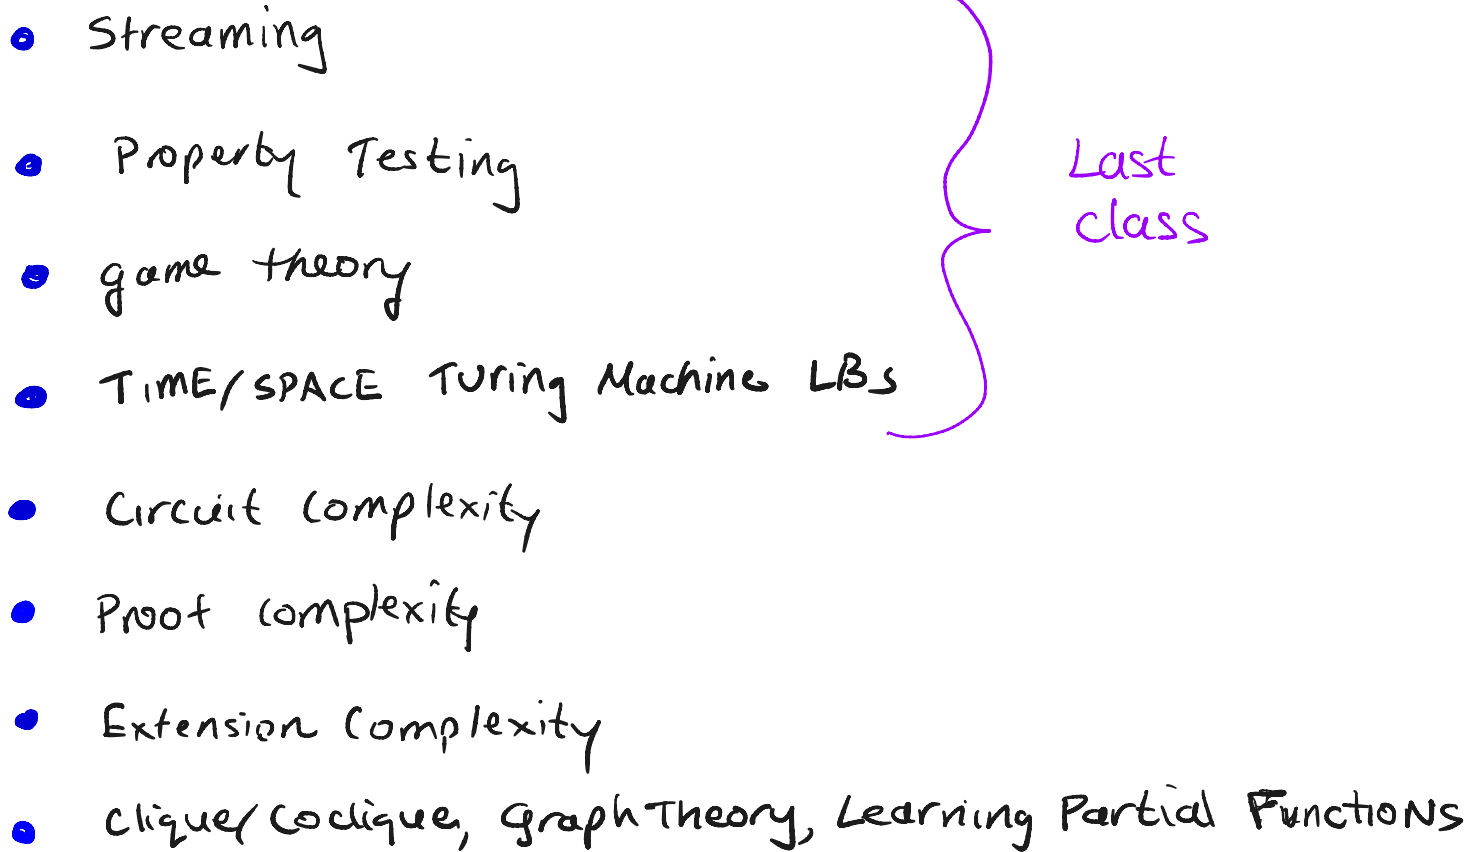 Streaming
Property Testing
Last
class
game theory
TIME/SPACE Turing Machine LBs
Circuit Complexity
Proof complexity
Extension Complexity
Clique/Coclique, Graph Theory, Learning Partial Functions